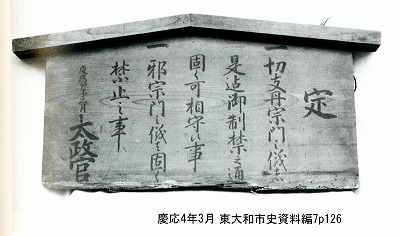 定
一 切支丹宗門之儀は
是迄御制禁之通
固く可相守事
一 邪宗門之儀は固く
禁止之事
慶應四年三月 太政官
慶応4年3月 東大和市史資料編7p126